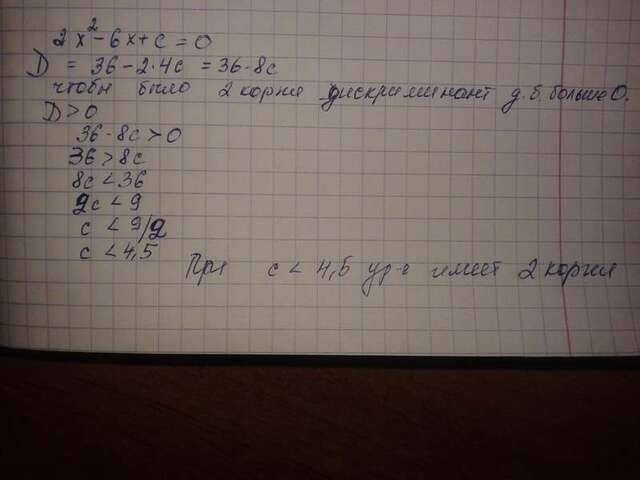 2x² - 6x + c = 0
D = 36 - 2·4c = 36 - 8c
чтобы было 2 корня дискриминант д.б. больше 0.
D > 0
36 - 8c > 0
36 > 8c
8c < 36
2c < 9
c < 9/2
c < 4,5
При c < 4,5 ур-е имеет 2 корня